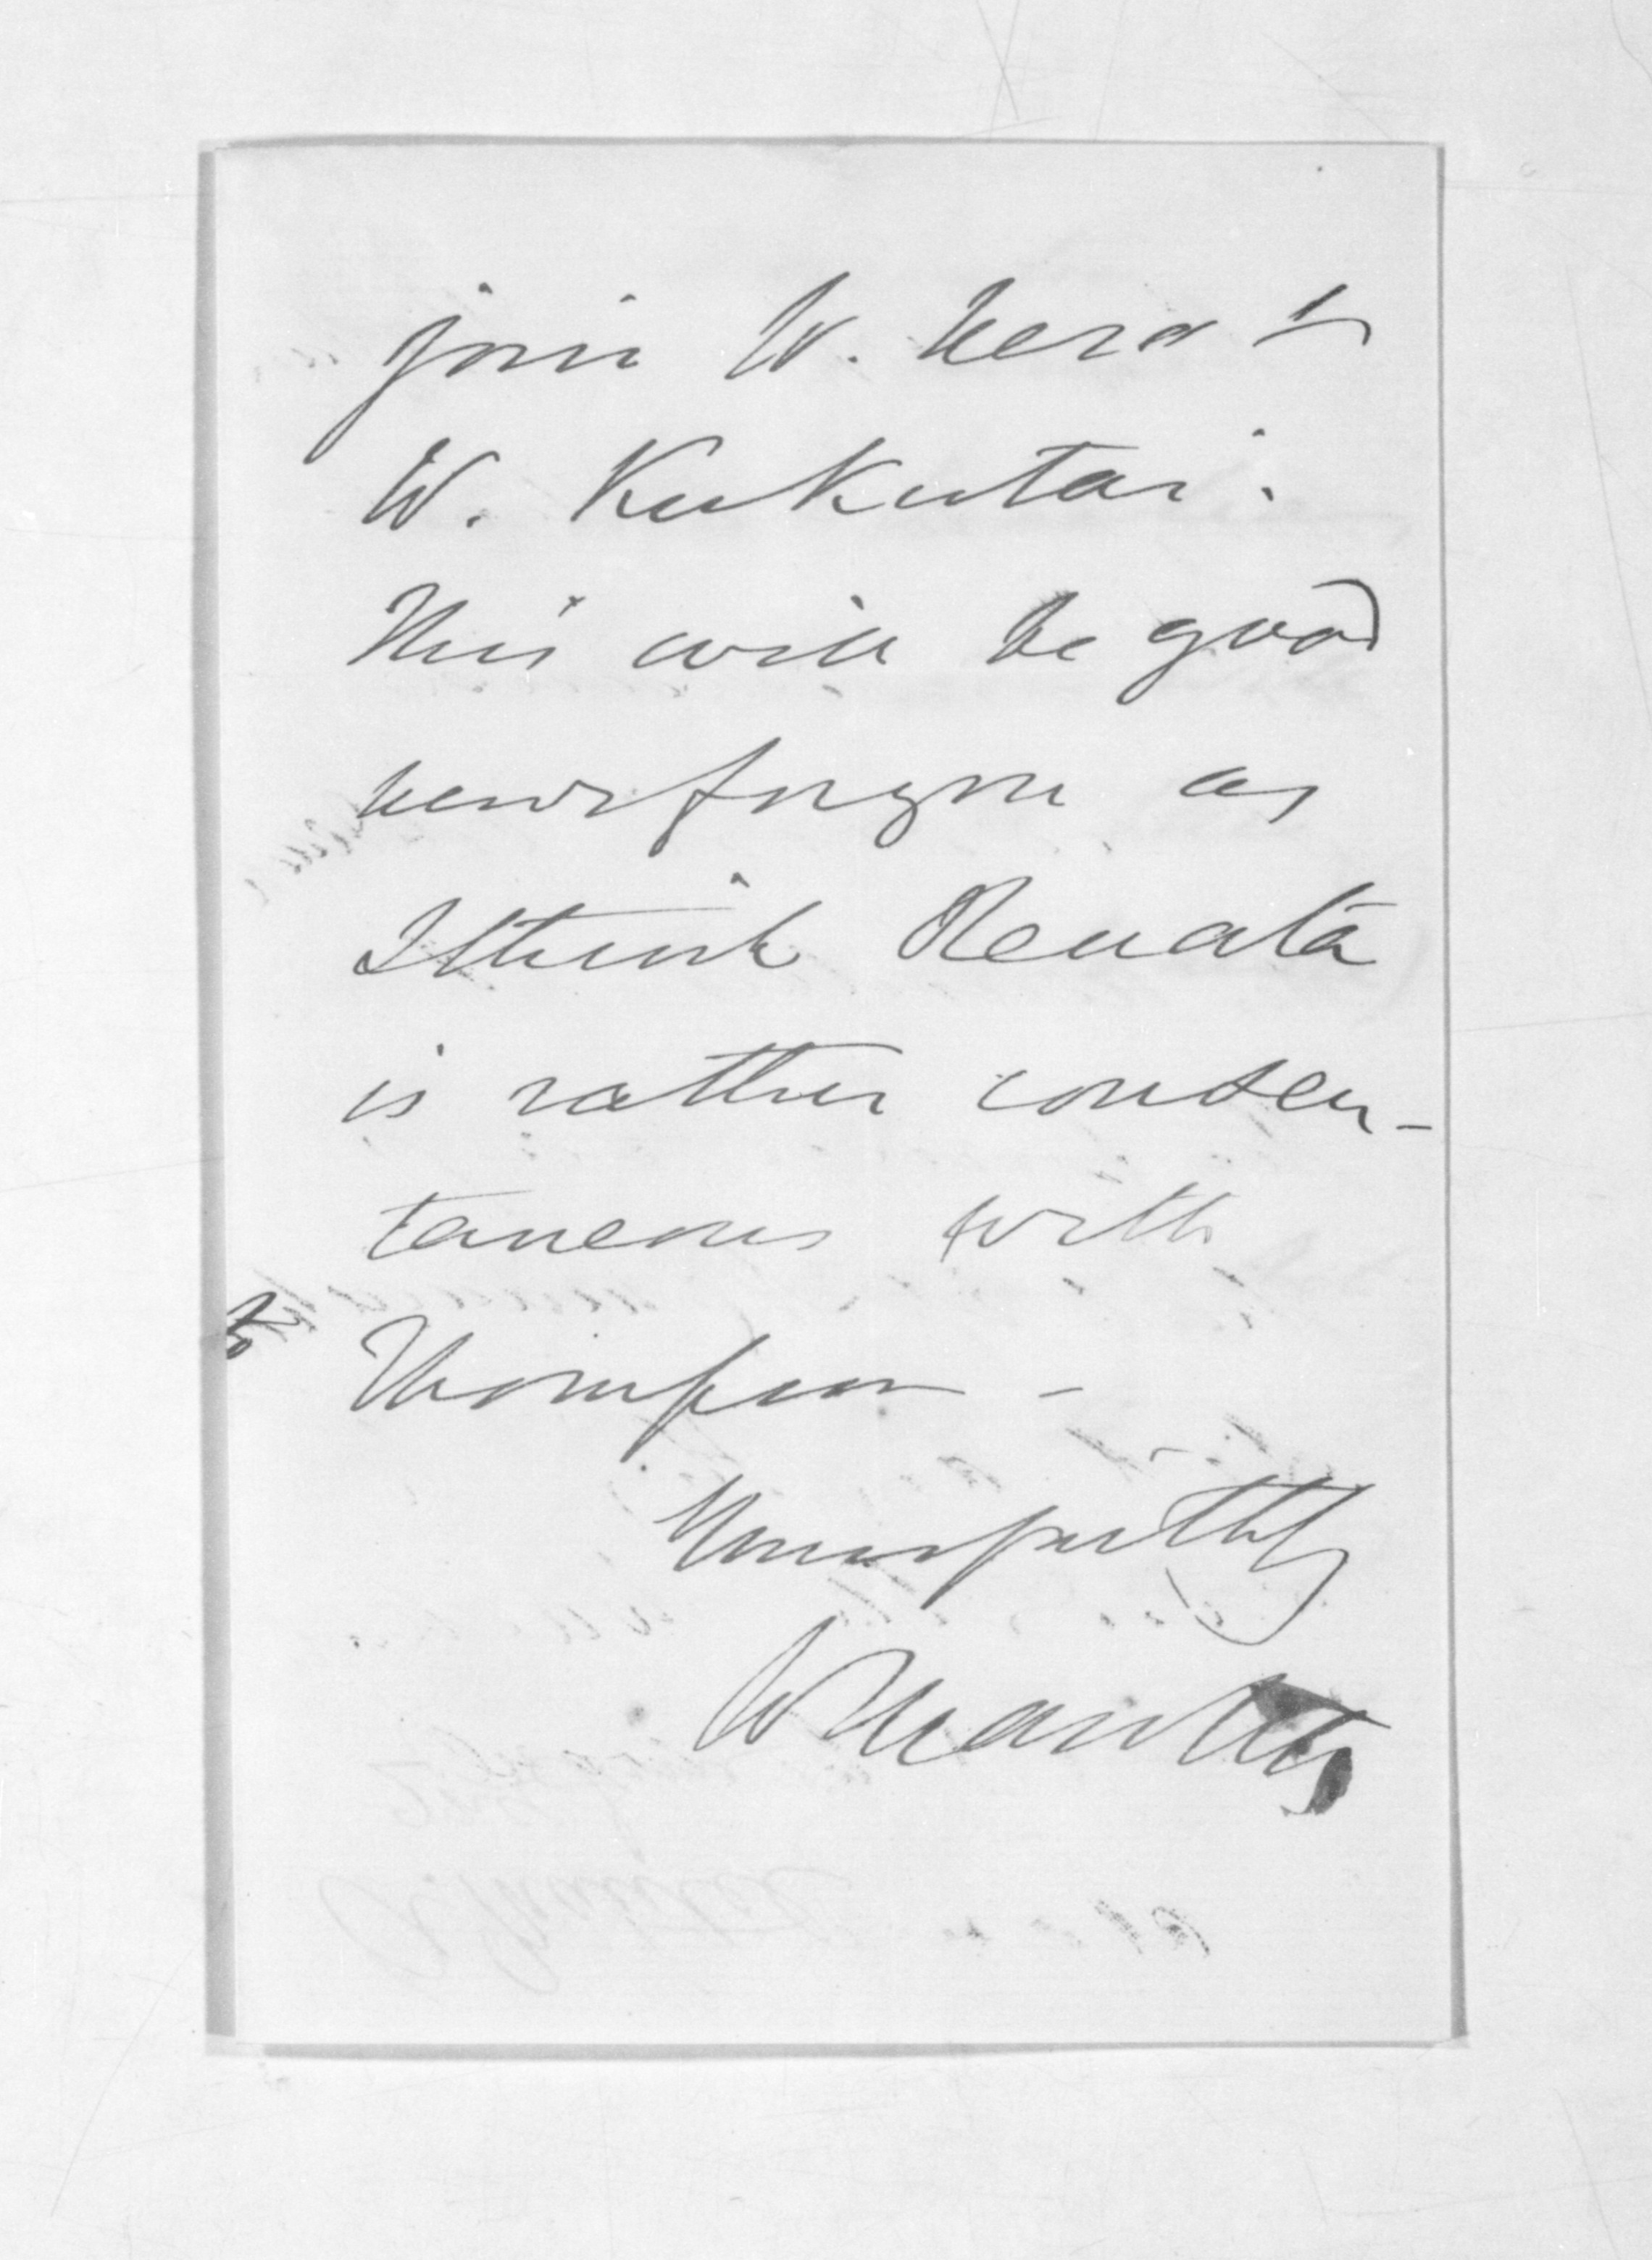 join W. Nero &
W. Kukutai.
This will be good
news for you as
I think Renata
is rather consen-
taneous with
Thompson -
Yours faithfly